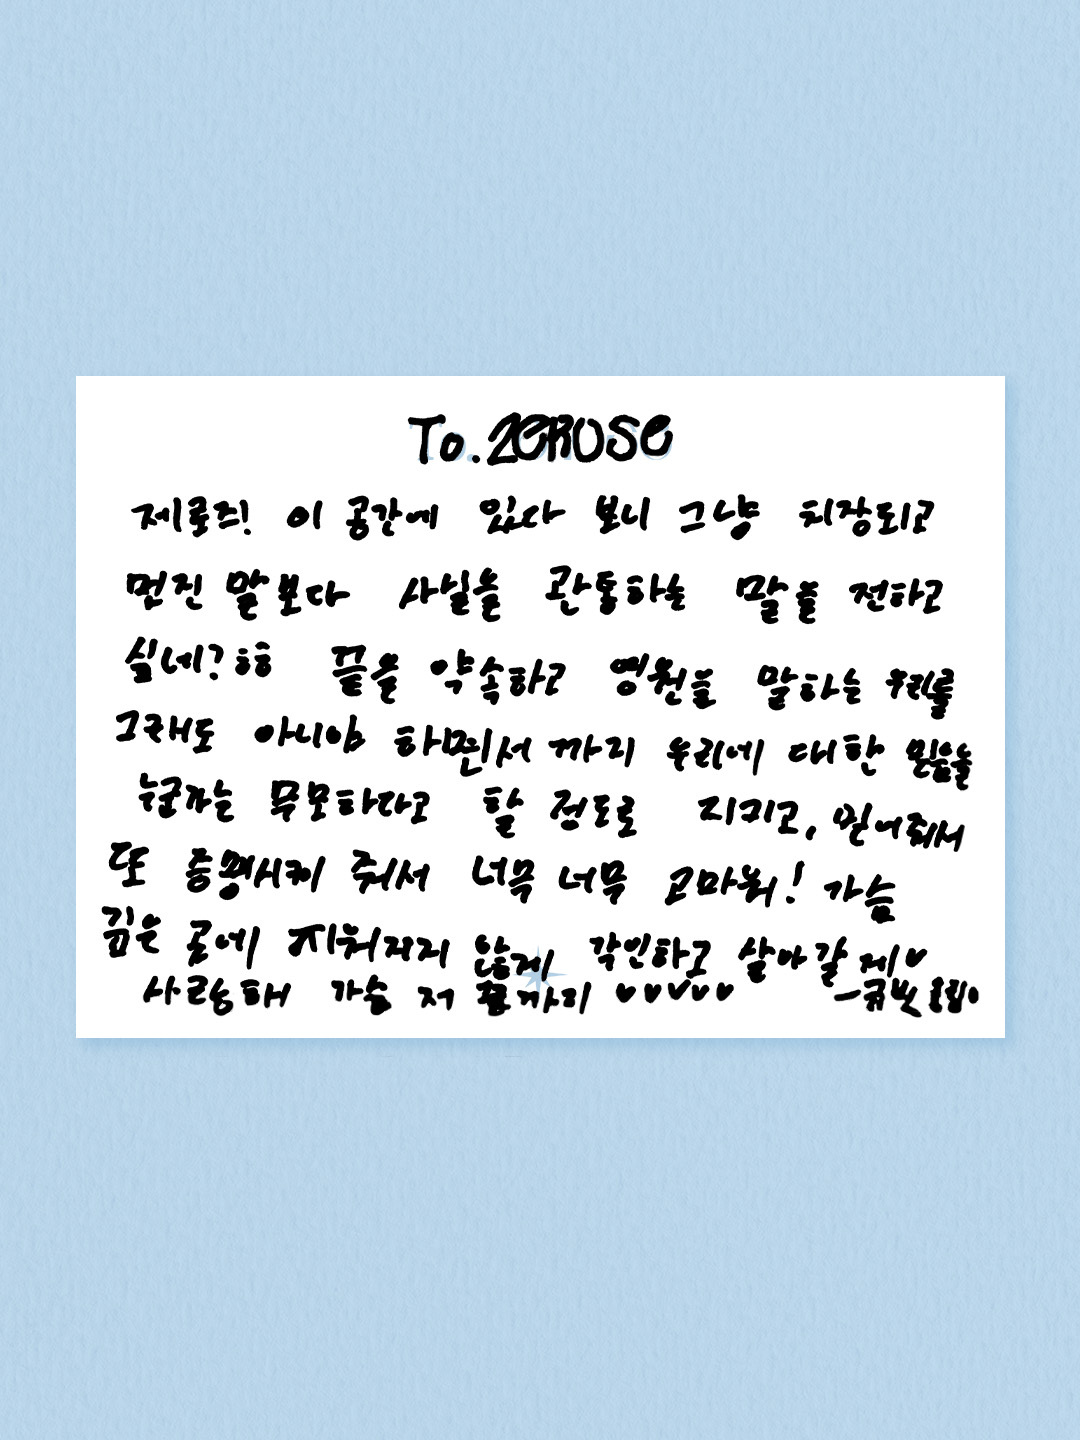 To. ZEROSE
제로즈! 이 공간에 있다 보니 그냥 치장되고
멋진 말보다 사실을 관통하는 말을 전하고
싶네? ㅎㅎ 끝을 약속하고 영원을 말하는 우리를
그래도 아니야 하면서 까지 우리에 대한 믿음을
누군가는 무모하다고 할 정도로 지키고, 믿어줘서
또 증명시켜 줘서 너무 너무 고마워! 가슴
깊은 곳에 지워지지 않게 각인하고 살아갈 게♥
사랑해 가슴 저 끝까지 ♥♥♥♥♥ -규빈